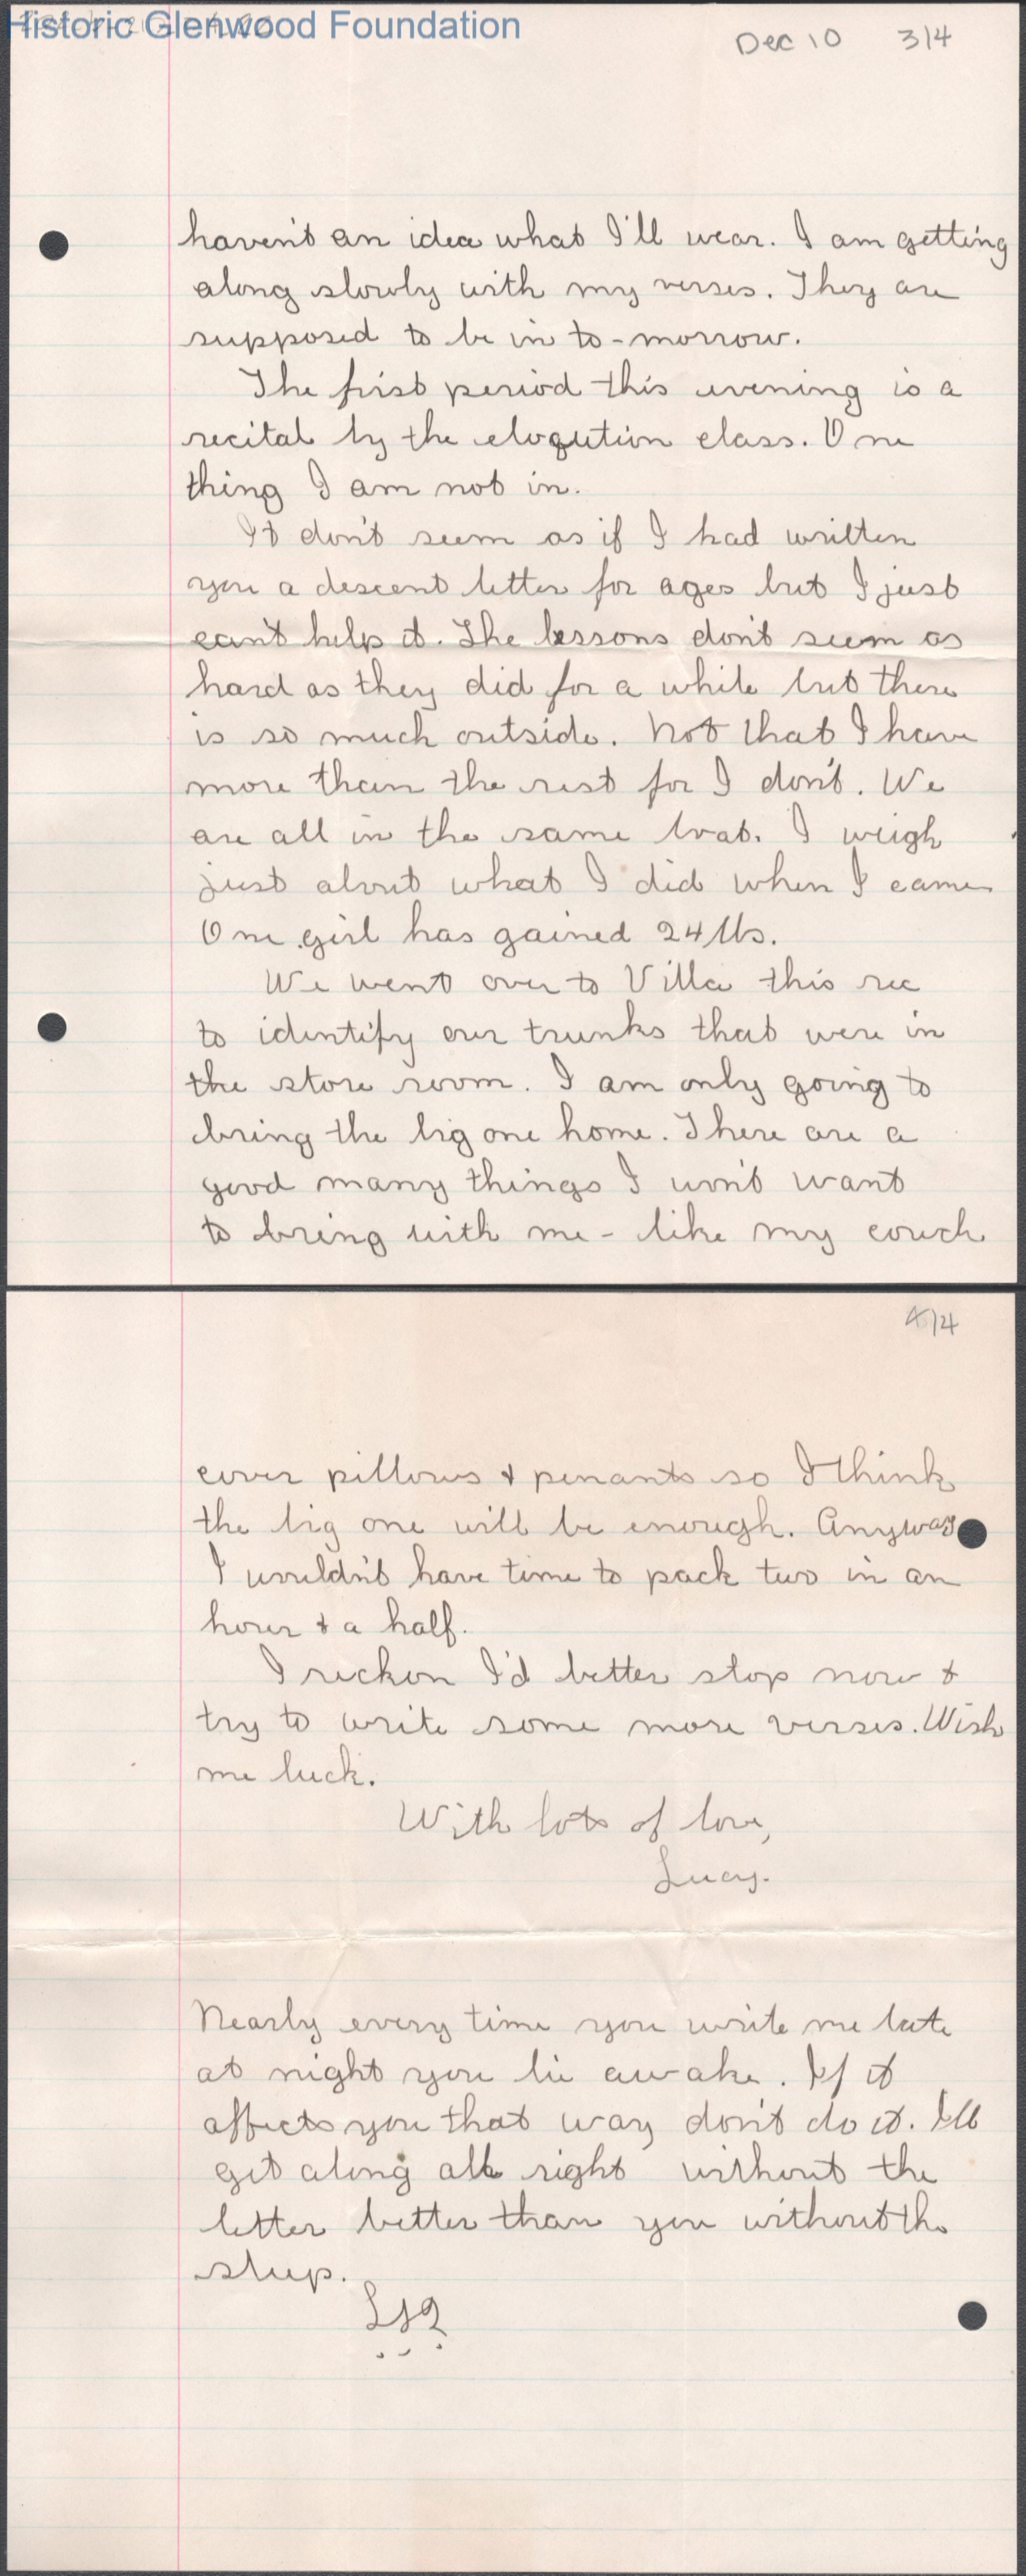 Historic Glenwood Foundation
Dec 10 3/4
haven't an idea what I'll wear. I am getting
along slowly with my verses. They are
supposed to be in to-morrow.
The first period this evening is a
recital by the eloqution class. One
thing I am not in.
It don't seem as if I had written
you a descent letter for ages but I just
can't help it. The lessons don't seem as
hard as they did for a while but there
is so much outside. Not that I have
more than the rest for I don't. We
are all in the same boat. I weigh
just about what I did when I came
One girl has gained 24 lbs.
We went over to Villa this rec
to identify our trunks that were in
the store room. I am only going to
bring the big one home. There are a
good many things I won't want
to bring with me - like my couch
4/4
cover pillows & penants so I think
the big one will be enough. Anyway
I wouldn't have time to pack two in an
hour & a half.
I reckon I'd better stop now &
try to write some more verses. Wish
me luck.
With lots of love,
Lucy.
Nearly every time you write me late
at night you lie awake. If it
affects you that way don't do it. I'll
get along all right without the
letter better than you without the
sleep.